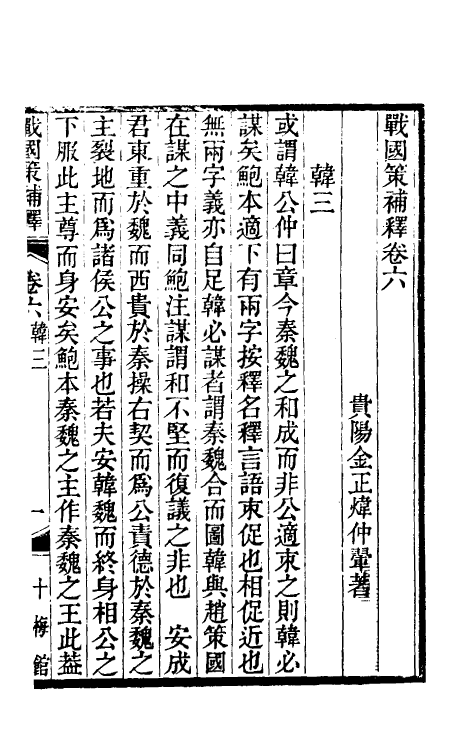 戰國策補釋卷六
貴陽金正煒仲鞏著
韓三
或謂韓公仲曰章今秦魏之和成而非公適束之則韓必
謀矣鮑本適下有兩字按釋名釋言語束促也相促近也
無兩字義亦自足韓必謀者謂秦魏合而圖韓與趙策國
在謀之中義同鮑注謀謂和不堅而復議之非也　安成
君東重於魏而西貴於秦操右契而爲公責德於秦魏之
主裂地而爲諸侯公之事也若夫安韓魏而終身相公之
下服此主尊而身安矣鮑本秦魏之主作秦魏之王此葢
戰國策補釋　卷六　韓三　一　十梅館